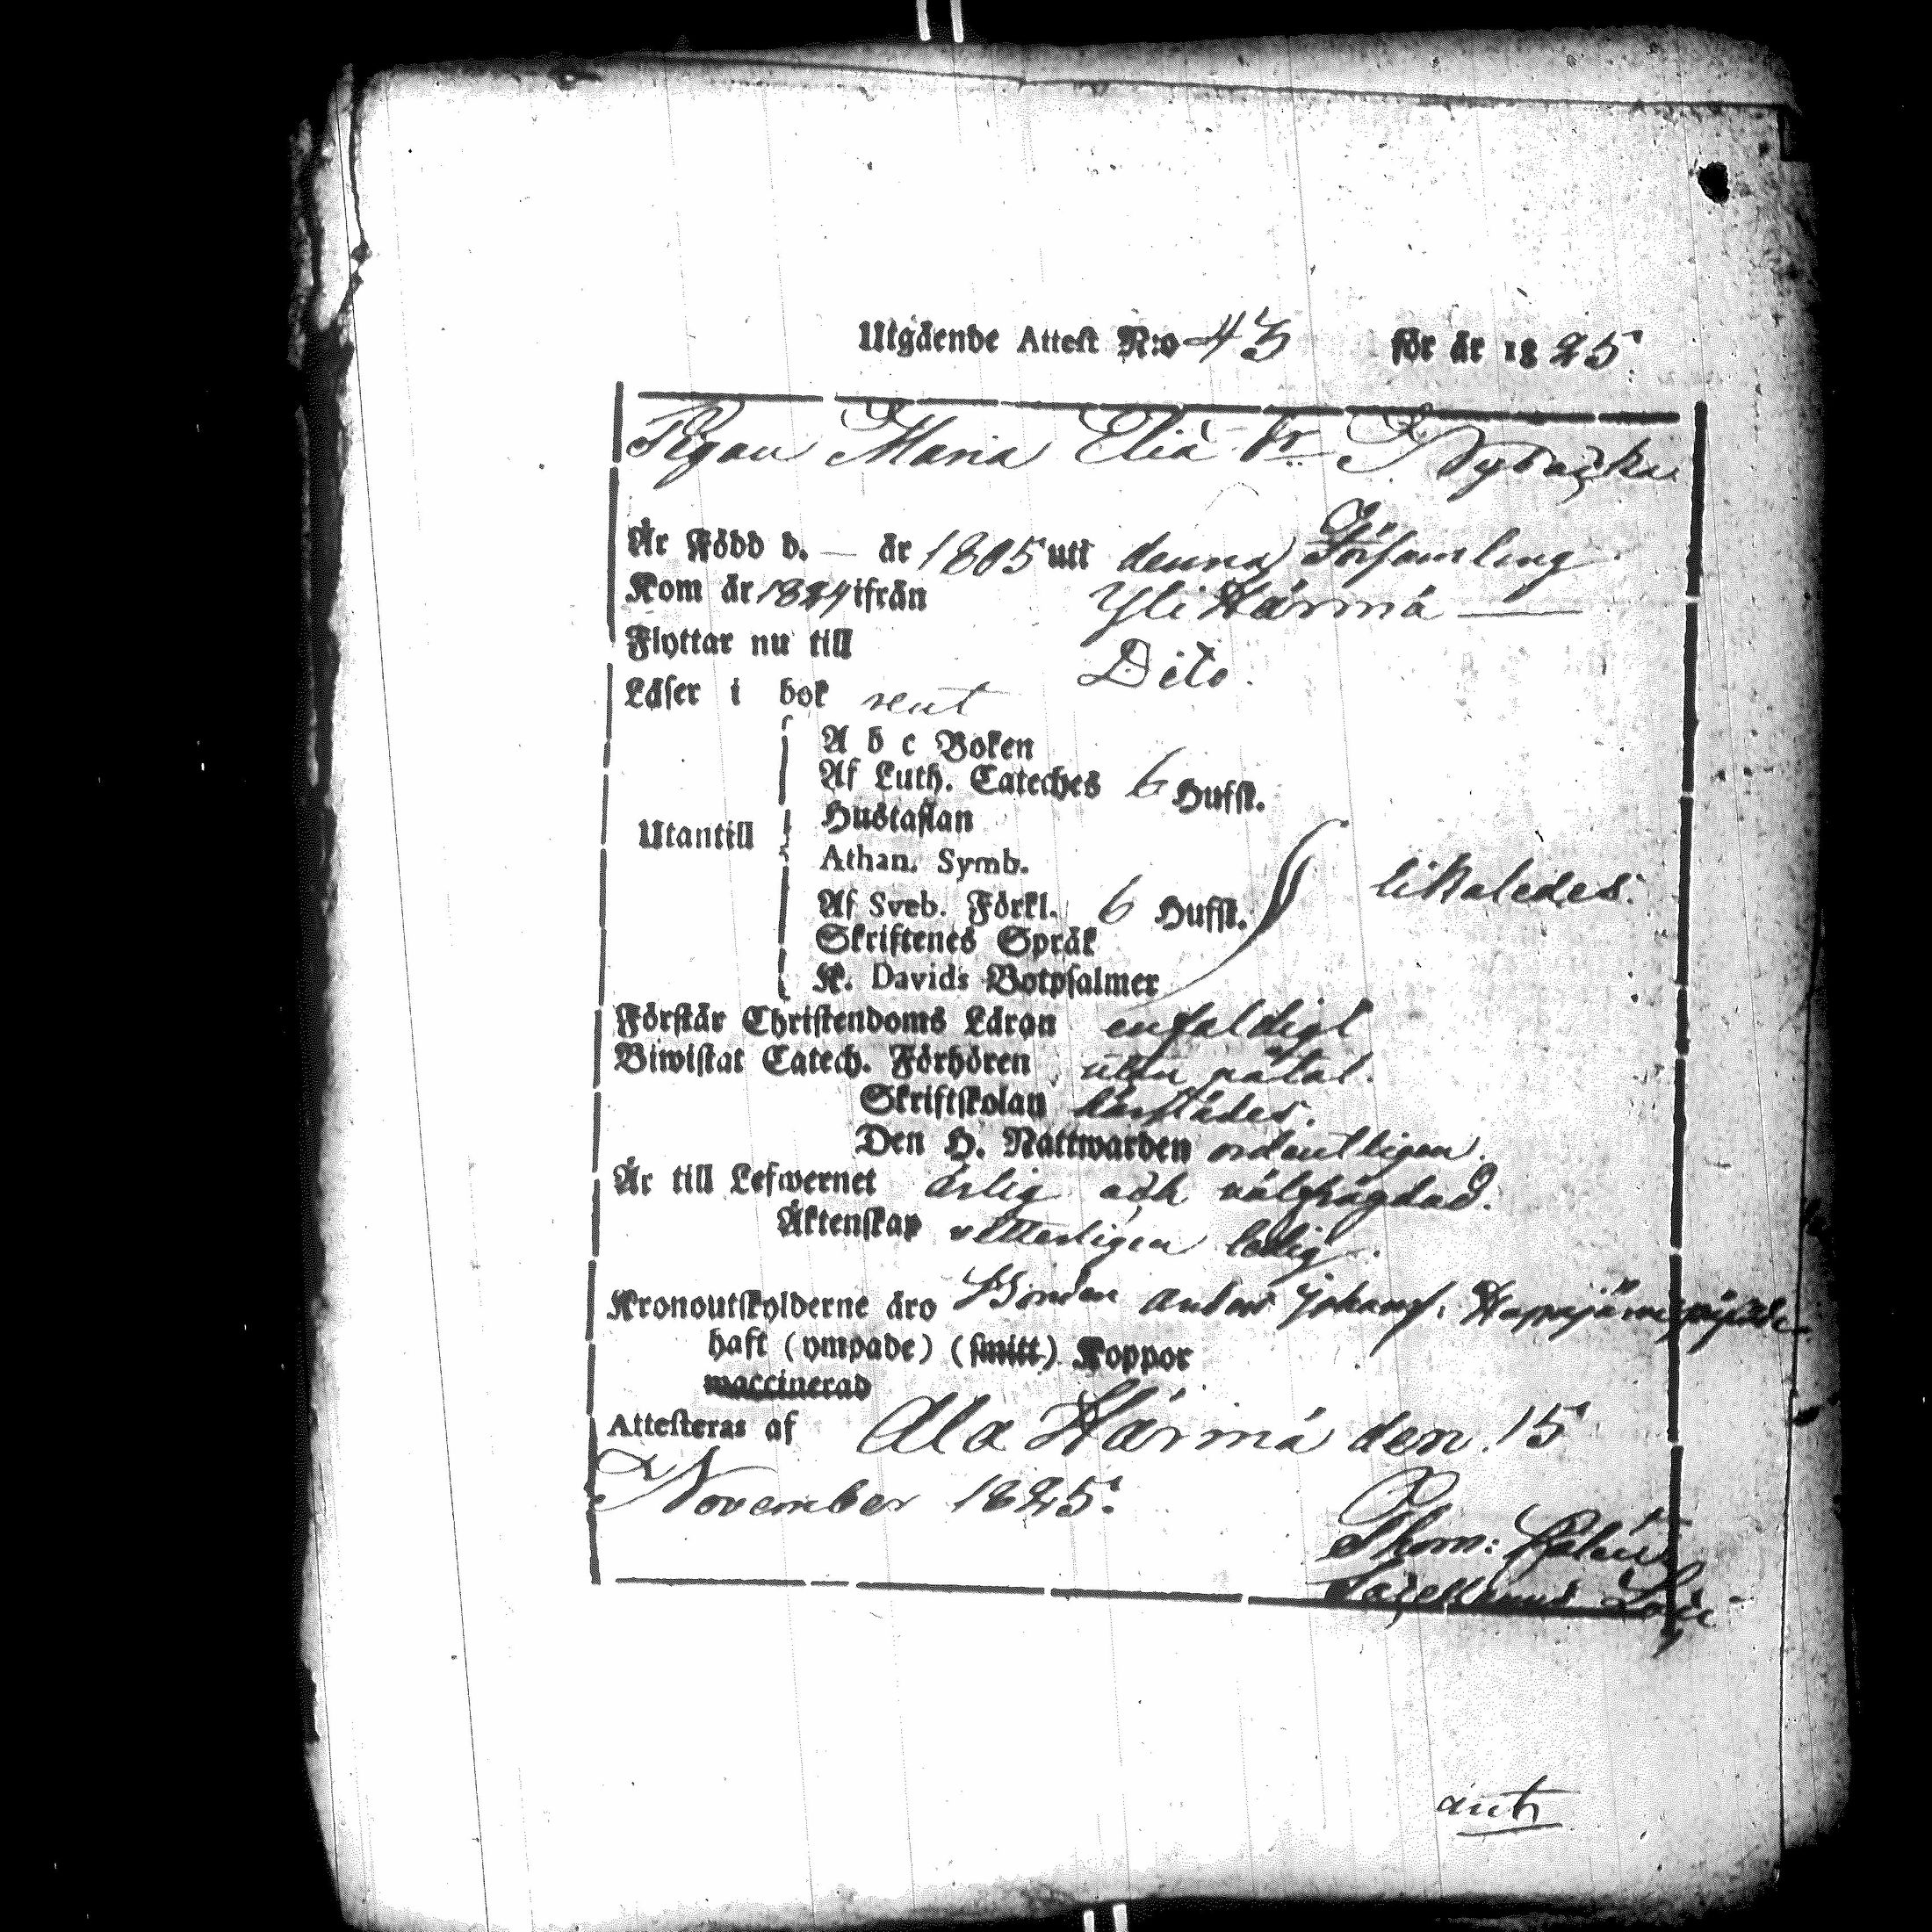 Utgående Attest N:o 43 för år 1825.
Pigan Maria Eliä dr
Är Född d. — år 1805 utt denna Församling.
Kom år 1824 ifrån Yli Härmä —
Flyttar nu till Dito.
Läser i bok rent
A b c Boken
Af Luth. Cateches 6 Hufst.
Hustaflan
Utantill
Athan. Symb.
Af Sveb. Förkl. 6 Hufst. likaledes.
Skriftenes Språk
K. Davids Botpsalmer
Förstår Christendoms Läran enfaldigt
Biwistat Catech. Förhören utan påtal.
Skriftskolan härstädes.
Den H. Nattwarden ordentligen.
Är till Lefwernet ärlig och välfrägdad.
Äktenskap vetterligen ledig.
Kronoutskylderne äro Bonden Anders Johanss.
haft (ympade) (smitt) Koppor
waccinerad
Attesteras af Ala Härmä den 15
November 1825.
Thom:
Sacellanus Loci